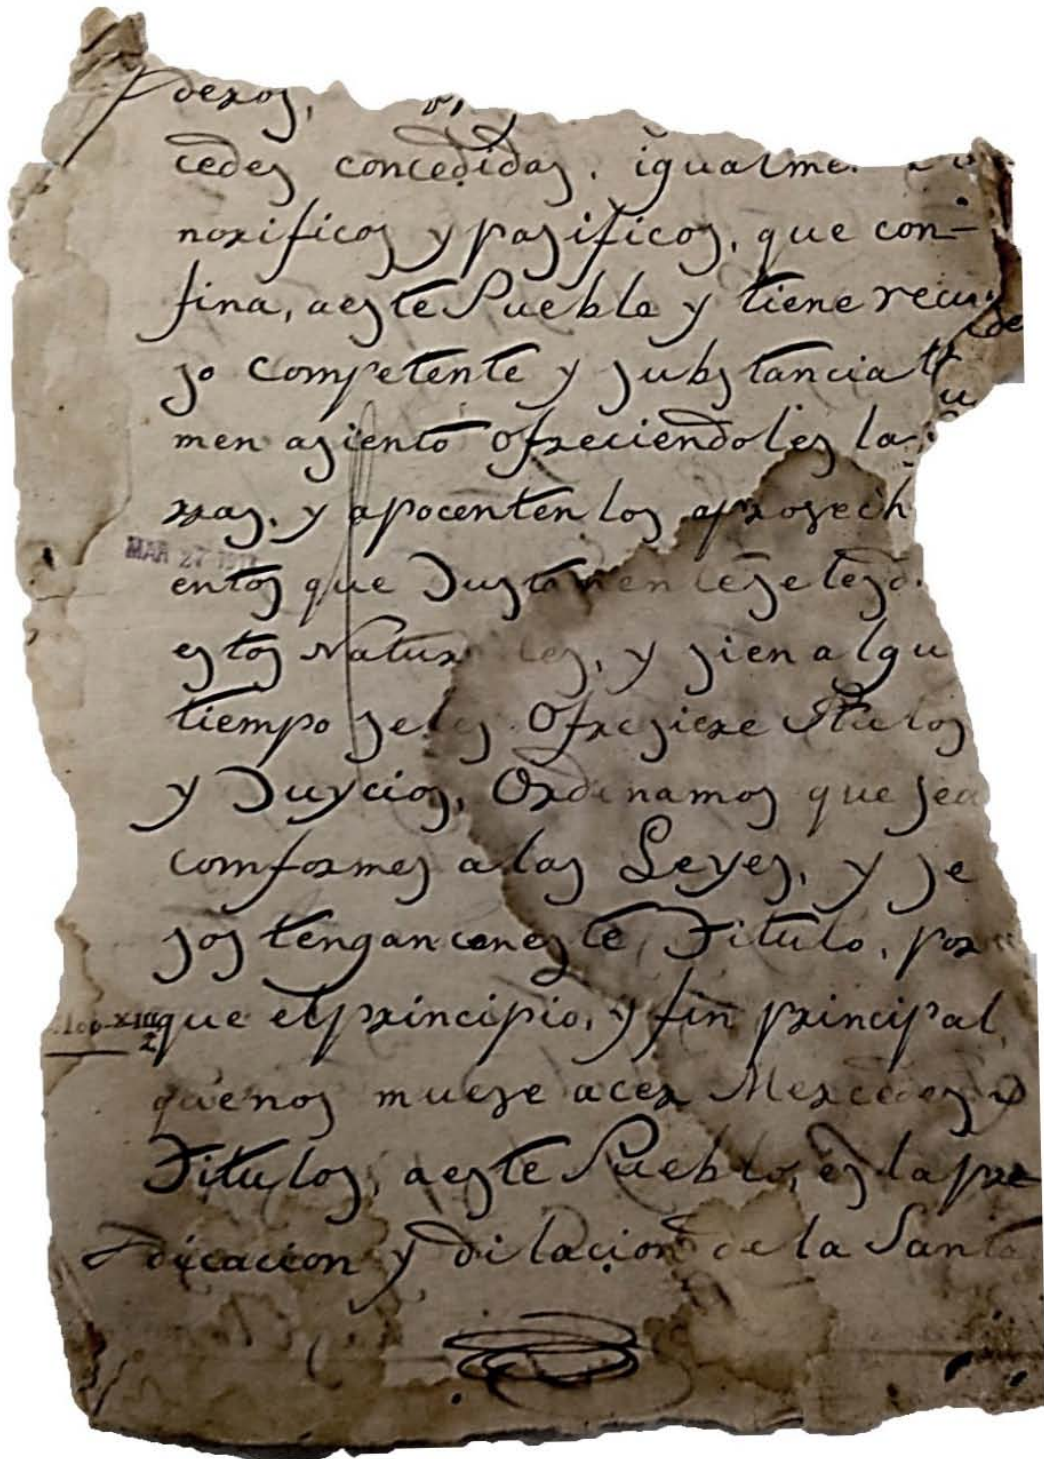 deros,
cedes concedidas, igualme
norificos y pasificos, que con-
fina, a este Pueblo y tiene recur
so competente y substancial
men asiento ofreciendoles la
rras, y apocenten los aprovech
MAR 27
entos que Justamente se les d
estos Naturales, y si en algu
tiempo se les Ofresiere Titulos
y Juycios, Ordinamos que sea
comformes a las Leyes, y se
sos tengan con este Titulo, por
que el principio, y fin principal
que nos mueve acer Mercedes y
Titulos, a este Pueblo, es la pre
dicacion y dilacion de la Santa